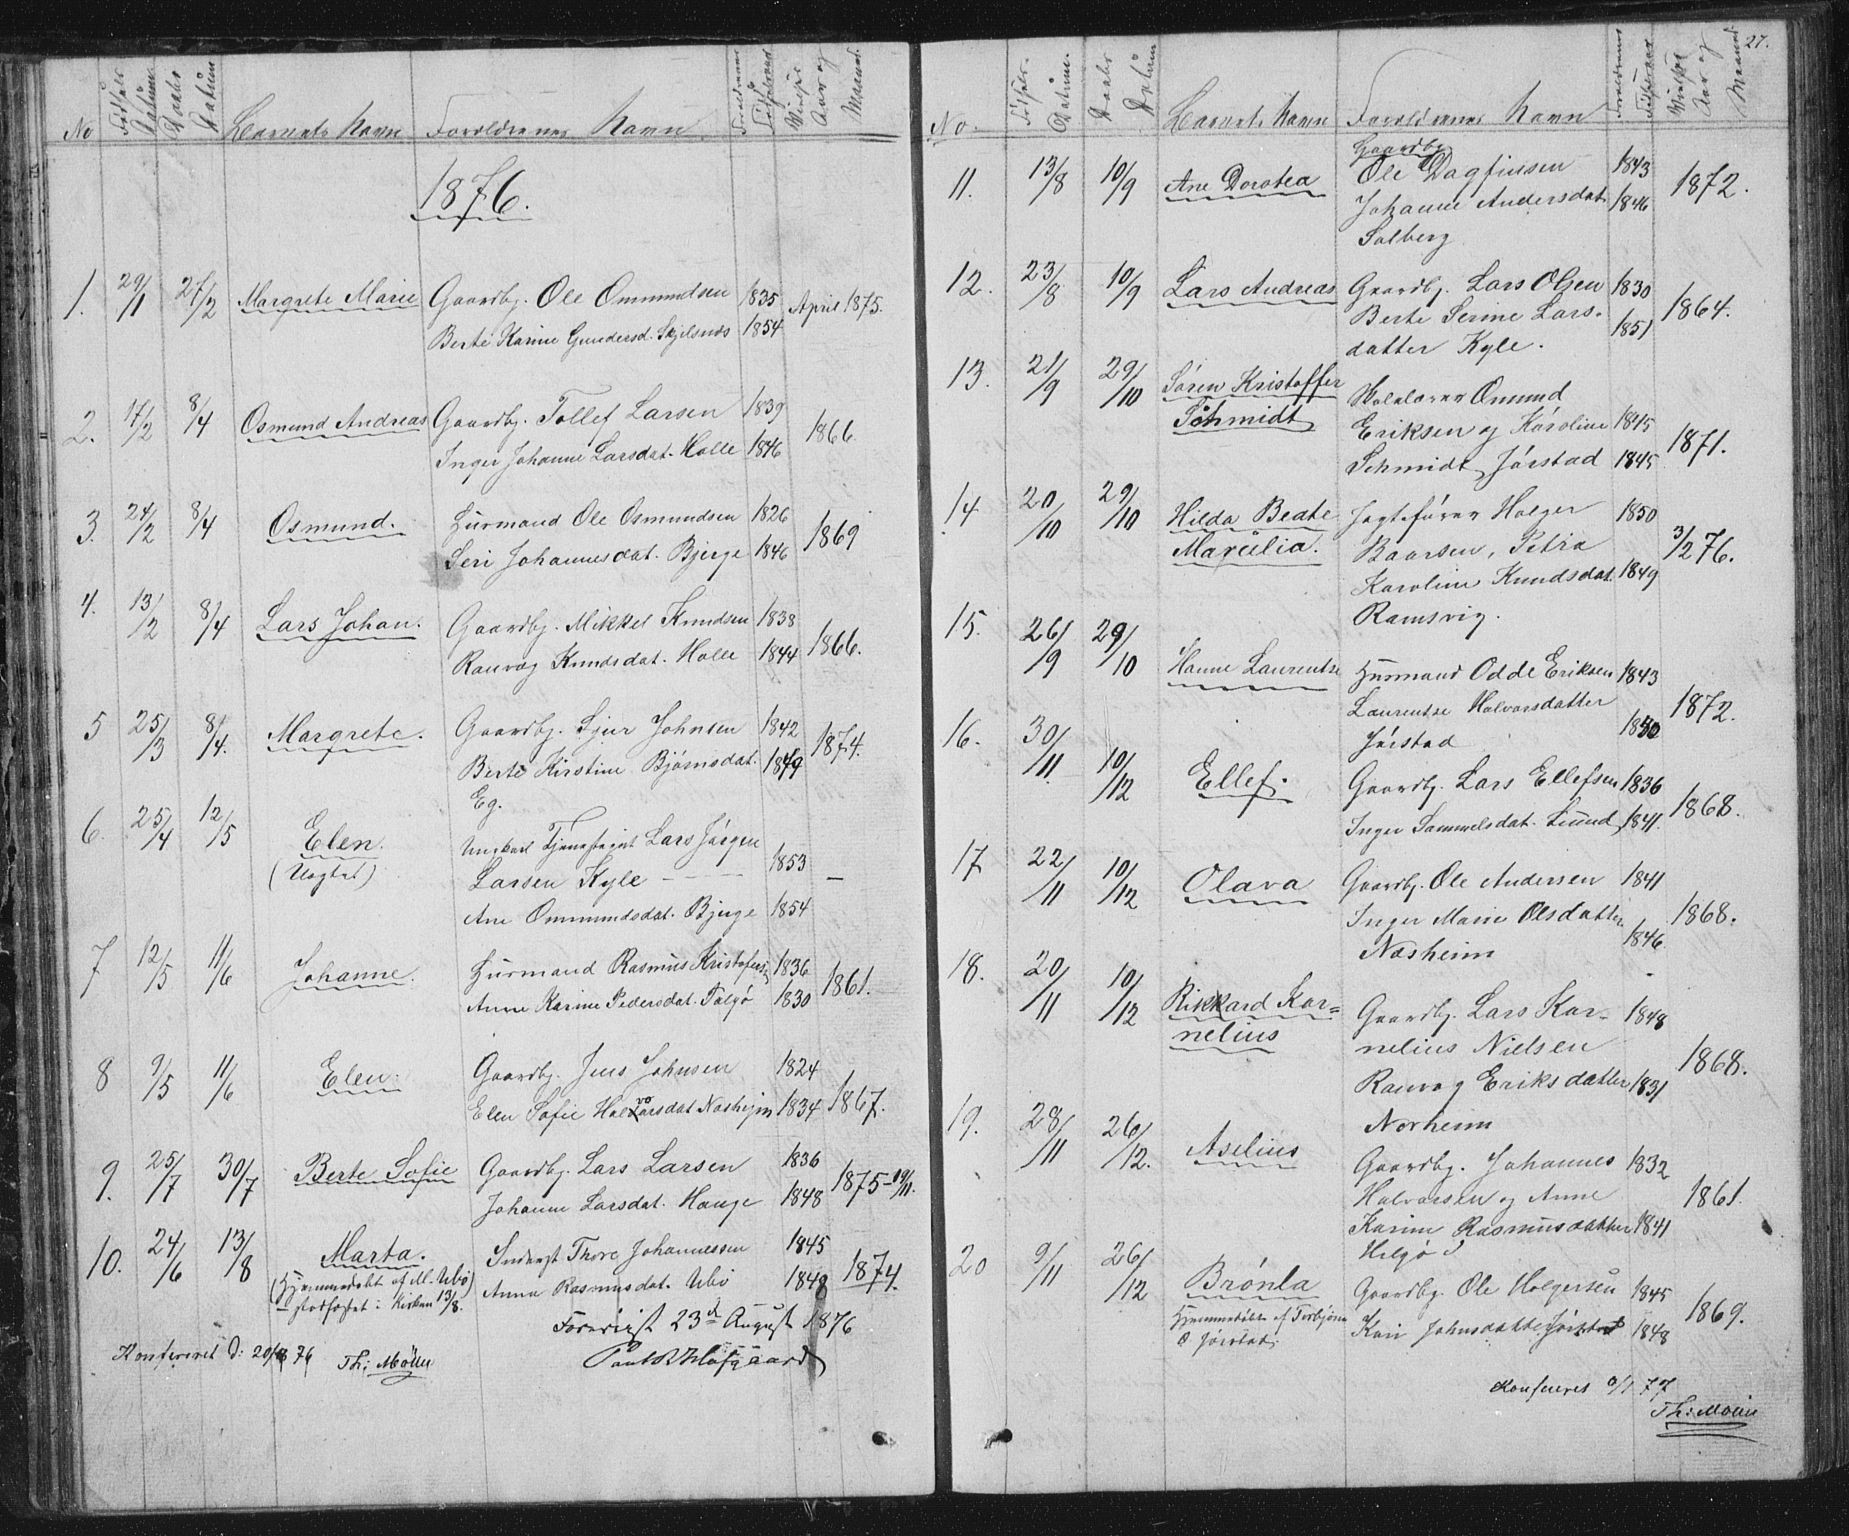 No Fødsels Datum Daabs Datum Barnets Navn Forældrenes Navn Forældrenes Fødselsaar Vielses Aar og Maaned
1876.
1. 29/1 27/2 Margrete Marie Gaardbr. Ole Ommundsen 1835 April 1875.
Berte Karine Gundersd. Skjelsnæs 1854
2. 17/2 8/4 Osmund Andreas Gaardbr. Tollef Larsen 1839 1866.
Inger Johanne Larsdat. Halle 1846
3. 24/2 8/4 Osmund. Huusmand Ole Osmundsen 1826 1869
Seri Johannesdat. Bjerge 1846
4. 13/2 8/4 Lars Johan. Gaardbr. Mikkel Knudsen 1838 1866.
Ranvøg Knudsdat. Halle 1844
5 25/3 8/4. Margrete. Gaardbr. Sjur Johnsen 1842 1874.
Berte Kirstine Bjørnsdat. 1849
Eg.
6. 25/4 12/5 Elen. Ungkarl Tjenestegut Lars Jørgen
(Uægte) Larsen Kyle — 1853 —
Ane Ommundsdat. Bjerge 1854
7 12/5 11/6 Johanne. Huusmand Rasmus Kristofersen 1836 1861.
Anne Karine Pedersdat. Talgø 1830
8 9/5 11/6 Elen. Gaardbr. Jens Johnsen 1824 1867.
Elen Sofie Halvorsdat Nasheim 1834
9. 25/7 30/7 Berte Sofie Gaardbr. Lars Larsen 1836 1875-19/11.
Johanne Larsdat. Hauge 1848
10. 24/6 13/8 Marta. Inderst Thore Johannessen 1845 1874.
(Hjemmedøbt af M. Ubø) Anna Rasmusdat. Ubø 1848
- stadfæstet i Kirken 13/8.
Foreviist 23d August 1876
Konfereret d: 20/8 76 Th: Møller

27.
No. Fødsels Datum. Daabs Datum Barnets Navn Forældrenes Navn Forældrenes Fødselsaar Vielses Aar og Maaned
Gaardbr.
11. 13/8 10/9 Ane Dorotea Ole Dagfinsen 1843 1872.
Johanne Andersdat. 1846
Salberg
12. 23/8 10/9 Lars Andreas Gaardbr. Lars Olsen 1830 1864.
Berte Serine Lars- 1851
datter Kyle.
13. 21/9 29/10 Søren Kristoffer Skolelærer Omund
Schmidt Eriksen og Karoline 1845 1871.
Schmidt Jørstad 1845
14 20/10 29/10 Hilda Beate Jagtefører Holger 1850
Marcelia. Baarsen, Petra 3/2 76.
Karoline Knudsdat. 1849
Ramsvig.
15. 26/9 29/10 Hanne Laurentse Huusmand Odde Eriksen 1843
Laurentse Halvorsdatter 1872.
Jørstad 1850
16. 30/11 10/12 Ellef. Gaardbr. Lars Ellefsen 1836 1868.
Inger Sammelsdat. Lund 1841.
17 22/11 10/12 Olava Gaardbr. Ole Andersen 1841
Inger Marie Olsdatter 1868.
Nasheim 1846.
18. 20/11 10/12 Rikkard Kor= Gaardbr. Lars Kor- 1848
nelius nelius Nielsen 1868.
Ranvøg Eriksdatter 1831
Norheim
19. 28/11 26/12. Aselius Gaardbr. Johannes 1832
Halvorsen og Anne 1861.
Karine Rasmusdatter 1841
Helgø
20 9/11 26/12 Brønla Gaardbr. Ole Holgersen 1845
Hjemmedøbt af Torbjørn Kari Johnsdatter Jørstad 1848 1869.
O Jørstad.
Konfereret 77
Th: Møller